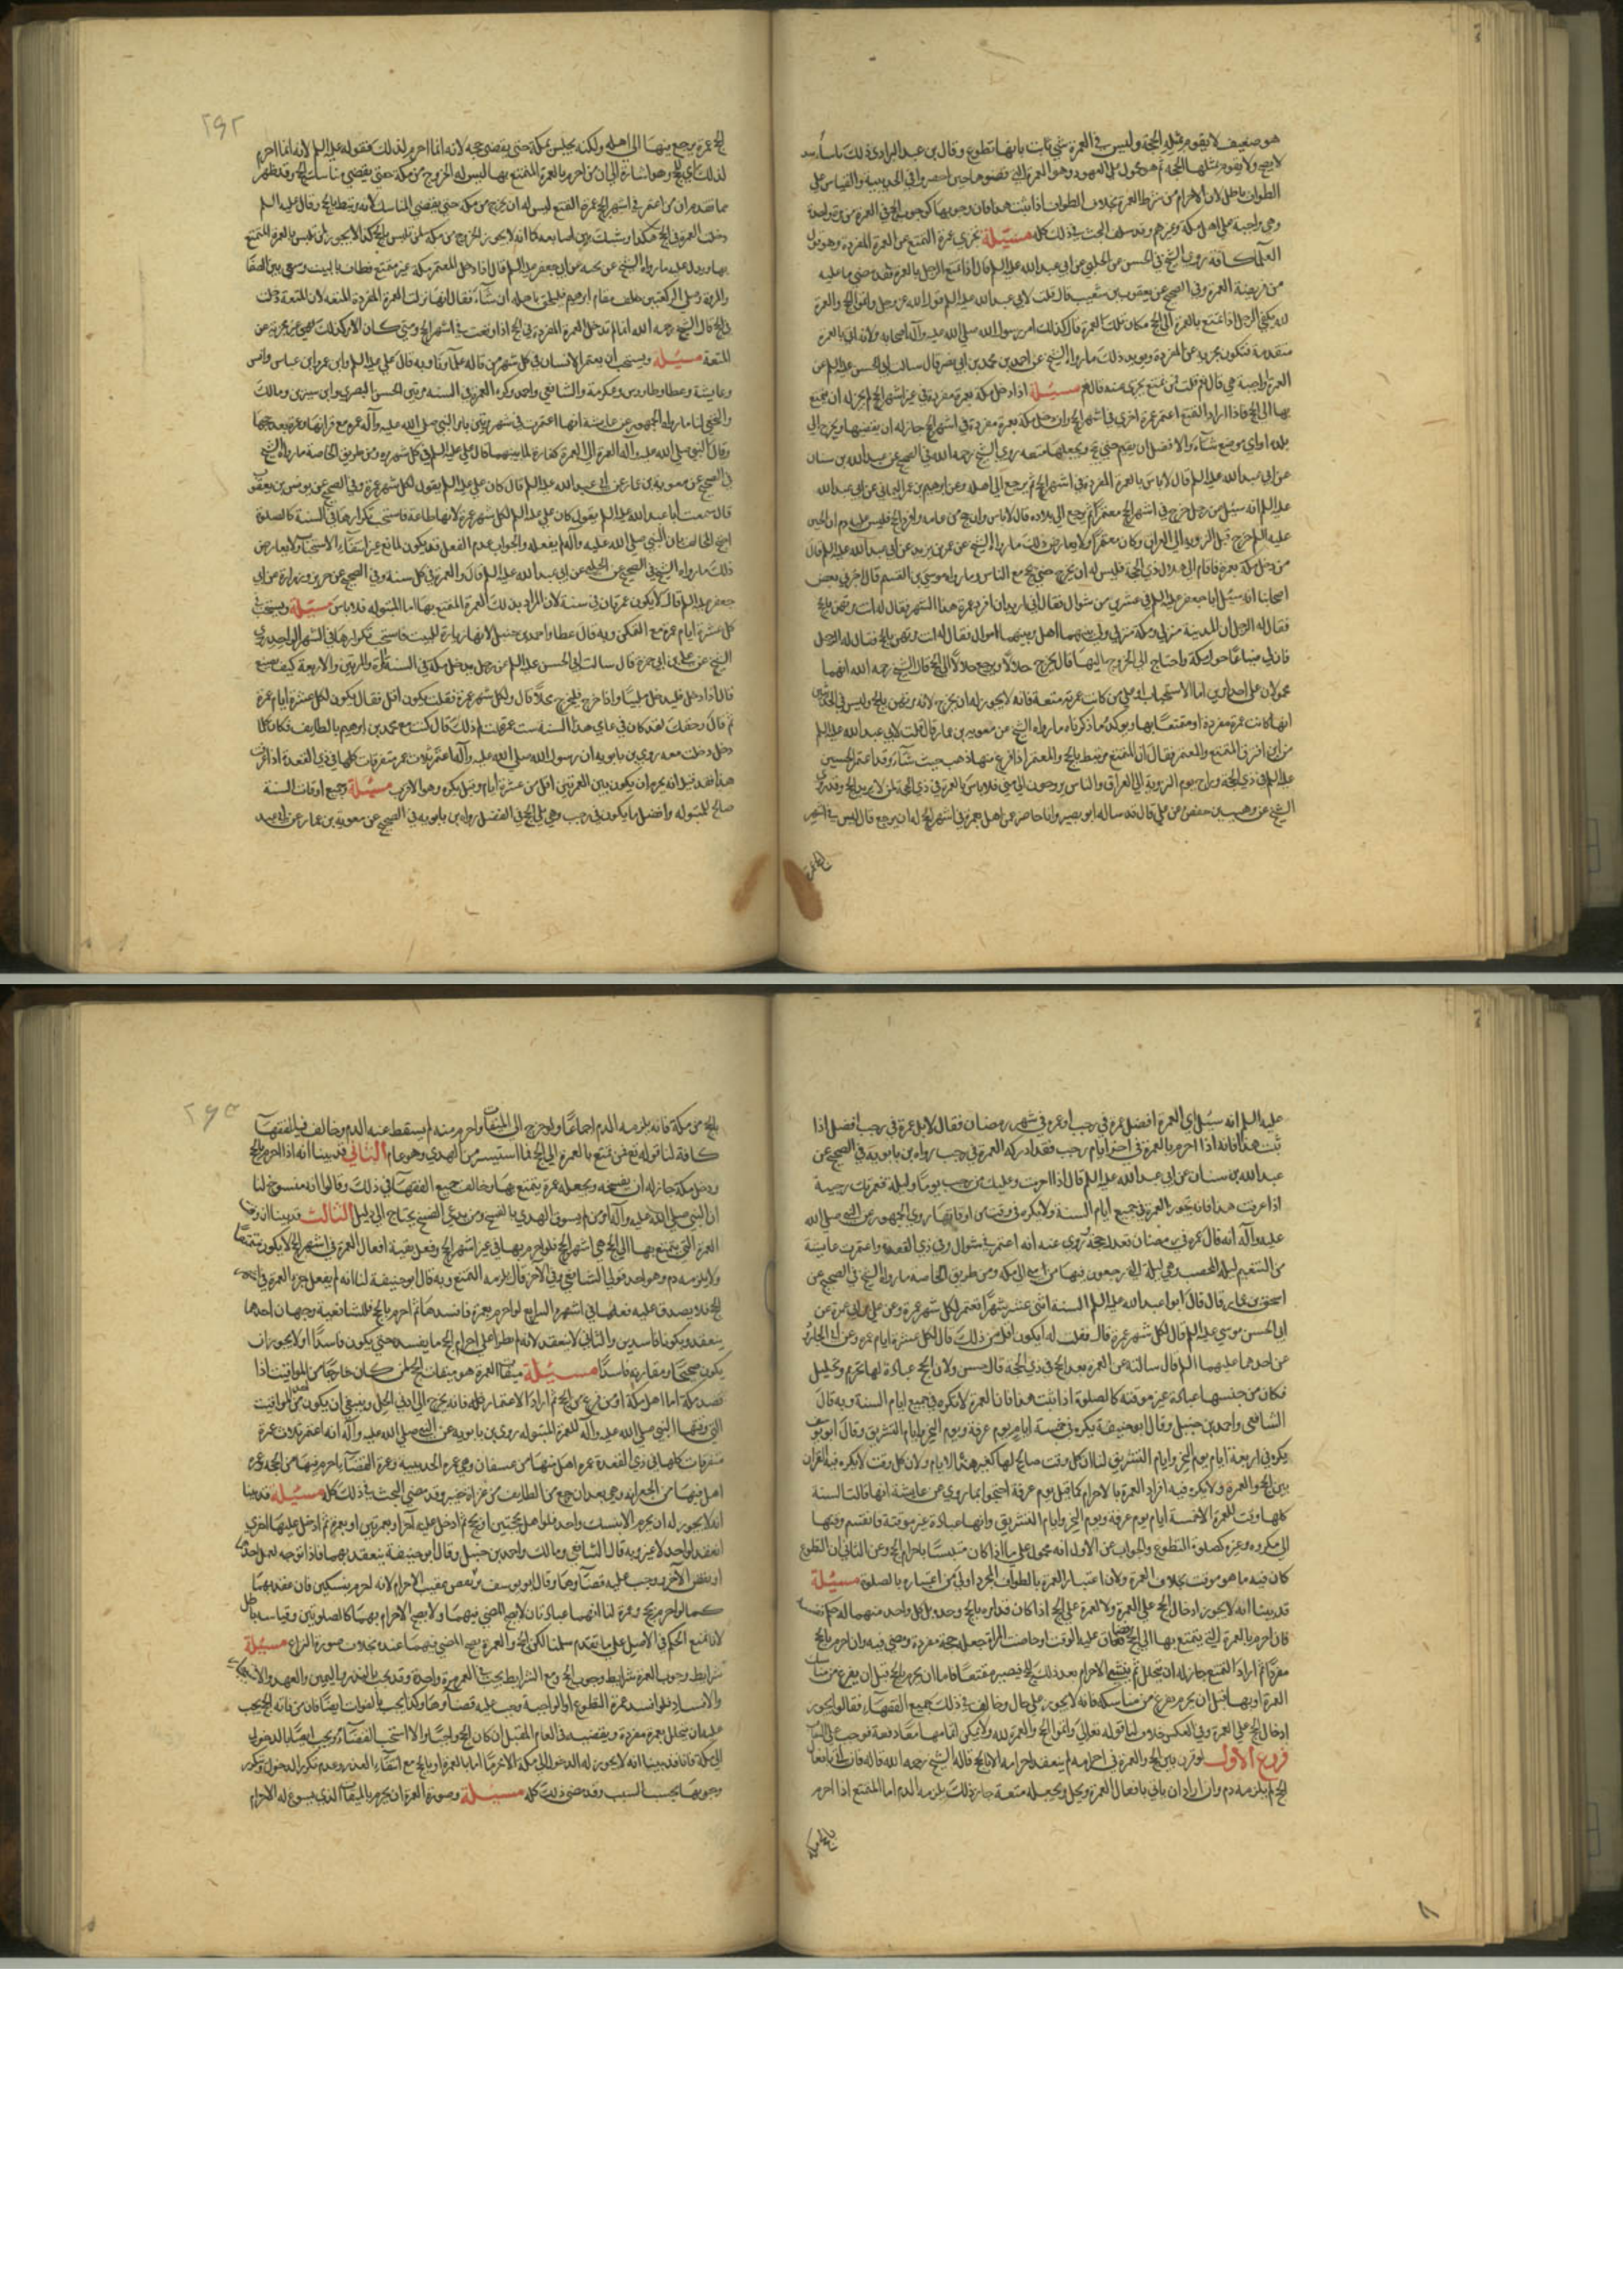 هو ضعيف لا يقوم بمثله الحجة وليس في العمرة شيء ثابت بانها تطوع وقال بن عبد البر روى ذلك باسانيد
لا يصح ولا يقوم بمثلها الحجة ثم هو محمول على المعهود وهو العمرة التي قضوها حين احصروا في الحديبية والقياس على
الطواف باطل لان الاحرام من شرط العمرة بخلاف الطواف اذا ثبت هذا فان وجوبها كوجوب الحج في العمرة مرة واحدة
وهي واجبة على اهل مكة وغيرهم وقد سلف البحث في ذلك كله مسئلة تجزي عمرة التمتع عن العمرة المفردة وهو قول
العلماء كافة روى الشيخ في الحسن عن الحلبي عن ابي عبد الله عليه السلم قال اذا تمتع الرجل بالعمرة فقد قضى ما عليه
من فريضة العمرة وفي الصحيح عن يعقوب بن شعيب قال قلت لابي عبد الله عليه السلم قول الله عز وجل واتموا الحج والعمرة
لله يكفي الرجل اذا تمتع بالعمرة الى الحج مكان تلك العمرة قال كذلك امر رسول الله صلى الله عليه وآله اصحابه ولانه اتى بالعمرة
متقدمة فتكون مجزية عن المفردة ويؤيد ذلك ما رواه الشيخ عن احمد بن محمد بن ابي نصر قال سالت ابا الحسن عليه السلم عن
العمرة واجبة هي قال نعم قلت فمن تمتع يجزي عنه قال نعم مسئلة اذا دخل مكة بعمرة مفردة في غير اشهر الحج لم يجز له ان يتمتع
بها الى الحج فاذا اراد التمتع اعتمر عمرة اخرى في اشهر الحج وان دخل مكة بعمرة مفردة في اشهر الحج جاز له ان يقضيها ويخرج الى
بلده او اي موضع شاء والافضل ان يقيم حتى يحج ويجعلها متعة روى الشيخ رحمه الله في الصحيح عن عبد الله بن سنان
عن ابي عبد الله عليه السلم قال لا باس بالعمرة المفردة في اشهر الحج ثم يرجع الى اهله وعن ابرهيم بن عمر اليماني عن ابي عبد الله
عليه السلم انه سئل عن رجل خرج في اشهر الحج معتمرا ثم رجع الى بلاده قال لا باس وان حج من عامه وافرد الحج فليس عليه دم ان الحسين
عليه السلم خرج قبل التروية الى العراق وكان معتمرا ولا يعارض ذلك ما رواه الشيخ عن عمر بن يزيد عن ابي عبد الله عليه السلم قال
من دخل مكة بعمرة فاقام الى هلال ذي الحجة فليس له ان يخرج حتى يحج مع الناس وما رواه موسى بن القسم قال اخبرني بعض
اصحابنا انه سئل ابا جعفر عليه السلم في عشر من شوال فقال اني اريد ان افرد عمرة هذا الشهر فقال له انت مرتهن بالحج
فقال له الرجل ان المدينة منزلي ومكة منزلي ولي بينهما اهل وبينهما اموال فقال له انت مرتهن بالحج فقال له الرجل
فان لي ضياعا حول مكة واحتاج الى الخروج اليها قال يخرج حلالا ويرجع حلالا الى الحج قال الشيخ رحمه الله انهما
محمولان على احد امرين اما الاستحباب او على من كانت عمرته متعة فانه لا يجوز له ان يخرج لانه مرتهن بالحج وليس في الخبرين
انها كانت عمرة مفردة او متمتعا بها ويؤكد ما ذكرناه ما رواه الشيخ عن معوية بن عمار قال قلت لابي عبد الله عليه السلم
من اين افترق المتمتع والمعتمر فقال ان المتمتع مرتبط بالحج والمعتمر اذا فرغ منها ذهب حيث شاء وقد اعتمر الحسين
عليه السلم في ذي الحجة وراح يوم التروية الى العراق والناس يروحون الى منى فلا باس بالعمرة في ذي الحجة لمن لا يريد الحج وقد روى
الشيخ عن وهيب بن حفص عن علي قال قد ساله ابو بصير وانا حاضر عمن اهل بعمرة في اشهر الحج له ان يرجع قال ليس في اشهر
الحج عمرة
٢٩٢
الحج عمرة يرجع منها الى اهله ولكنه يحتبس بمكة حتى يقضي حجه لانه انما احرم لذلك فقوله عليه السلم لانه انما احرم
لذلك اي للحج وهو اشارة الى ان من احرم بالعمرة المتمتع بها ليس له الخروج من مكة حتى يقضي مناسك الحج وقد ظهر
مما تقدم ان من اعتمر في اشهر الحج عمرة التمتع ليس له ان يخرج من مكة حتى يقضي المناسك لانه مرتبط بالحج وقال عليه السلم
دخلت العمرة في الحج هكذا وشبك بين اصابعه كما انه لا يجوز الخروج من مكة لمن تلبس بالحج كذا لا يجوز لمن تلبس بالعمرة المتمتع
بها ويدل عليه ما رواه الشيخ عن نجية عن ابي جعفر عليه السلم قال اذا دخل المعتمر مكة غير متمتع فطاف بالبيت وسعى بين الصفا
والمروة وصلى الركعتين خلف مقام ابرهيم فليلحق باهله ان شاء فقال انما نزلت العمرة المفردة المتعة لان المتعة دخلت
في الحج قال الشيخ رحمه الله انما لم تدخل العمرة المفردة في الحج اذا وقعت في اشهر الحج ومتى كان الامر كذلك فهي غير مجزية عن
المتعة مسئلة ويستحب ان يعتمر الانسان في كل شهر من قاله علماؤنا وبه قال علي عليه السلم وابن عمر وابن عباس وانس
وعايشة وعطا وطاوس وعكرمة والشافعي واحمد وكره العمرة في السنة مرتين الحسن البصري وابن سيرين ومالك
والنخعي لنا ما رواه الجمهور عن عايشة انها اعتمرت في شهر مرتين بامر النبي صلى الله عليه وآله عمرة مع قرانها وعمرة بعد حجها
وقال النبي صلى الله عليه وآله العمرة الى العمرة كفارة لما بينهما وقال علي عليه السلم في كل شهر مرة ومن طريق الخاصة ما رواه الشيخ
في الصحيح عن معوية بن عمار عن ابي عبد الله عليه السلم قال كان علي عليه السلم يقول لكل شهر عمرة وفي الصحيح عن يونس بن يعقوب
قال سمعت ابا عبد الله عليه السلم يقول كان علي عليه السلم لكل شهر عمرة لانها طاعة فاستحب تكرارها في السنة كالصلوة
احتج المخالف بان النبي صلى الله عليه وآله لم يفعله والجواب عدم الفعل قد يكون لمانع غير انتفاء الاستحباب ولا يعارض
ذلك ما رواه الشيخ في الصحيح عن الحلبي عن ابي عبد الله عليه السلم قال والعمرة في كل سنة وفي الصحيح عن حريز وزرارة عن ابي
جعفر عليه السلم قال لا يكون عمرتان في سنة لان المراد بذلك العمرة المتمتع بها اما المبتولة فلا باس مسئلة ويستحب في
كل عشرة ايام عمرة مع التمكن وبه قال عطا واحمد بن حنبل لانها زيارة للبيت فاستحب تكرارها في الشهر الواحد روى
الشيخ عن علي بن ابي حمزة قال سالت ابا الحسن عليه السلم عن رجل يدخل مكة في السنة المرة والمرتين والاربعة كيف يصنع
قال اذا دخل فليدخل ملبيا واذا خرج فليخرج محلا قال ولكل شهر عمرة فقلت يكون اقل فقال يكون لكل عشرة ايام عمرة
ثم قال وحقك لقد كان في عامي هذا السنة ست عمر قلت لم ذلك قال كنت مع محمد بن ابرهيم بالطايف فكان كلما
دخل دخلت معه روى بن بابويه ان رسول الله صلى الله عليه وآله اعتمر ثلاث عمر متفرقات كلها في ذي القعدة اذا عرفت
هذا فقد قيل انه يحرم ان يكون بين العمرتين اقل من عشرة ايام وقيل يكره وهو الاقرب مسئلة وجميع اوقات السنة
صالح للمبتولة وافضل ما يكون في رجب وهي تلي الحج في الفضل رواه بن بابويه في الصحيح عن معوية بن عمار عن ابي عبد
عليه السلم انه سئل اي العمرة افضل عمرة في رجب او عمرة في شهر رمضان فقال لا بل عمرة في رجب افضل اذا
ثبت هذا فانه اذا احرم بالعمرة في اخر ايام رجب فقد ادركه العمرة في رجب رواه بن بابويه في الصحيح عن
عبد الله بن سنان عن ابي عبد الله عليه السلم قال اذا احرمت وعليك من رجب يوم وليلة فعمرتك رجبية
اذا عرفت هذا فانه تجوز العمرة في جميع ايام السنة ولا يكره في وقت من اوقاتها روى الجمهور عن النبي صلى الله
عليه وآله انه قال عمرة في رمضان تعدل حجة وروي عنه انه اعتمر في شوال وفي ذي القعدة واعتمرت عايشة
من التنعيم ليلة المحصب وهي ليلة التي يرجعون فيها من منى الى مكة ومن طريق الخاصة ما رواه الشيخ في الصحيح عن
اسحق بن عمار قال قال ابو عبد الله عليه السلم السنة اثنى عشر شهرا يعتمر لكل شهر عمرة وعن علي بن ابي حمزة عن
ابي الحسن موسى عليه السلم قال لكل شهر عمرة قال فقلت له ايكون اقل من ذلك قال لكل عشرة ايام عمرة وعن ابي الجارود
عن احدهما عليهما السلم قال سالته عن العمرة بعد الحج في ذي الحجة قال حسن ولان الحج عبادة لها تحريم وتحليل
فكان من جنسها عبادة غير موقتة كالصلوة اذا ثبت هذا فان العمرة لا تكره في جميع ايام السنة وبه قال
الشافعي واحمد بن حنبل وقال ابو حنيفة يكره في خمسة ايام يوم عرفة ويوم النحر وايام التشريق وقال ابو يوسف
يكره في اربعة ايام يوم النحر وايام التشريق لنا ان كل وقت صالح لها كغير هذه الايام ولان كل وقت لا يكره فيه القران
بين الحج والعمرة ولا يكره فيه افراد العمرة بالاحرام كما قبل يوم عرفة احتجوا بما روى عن عايشة انها قالت السنة
كلها وقت للعمرة الا خمسة ايام يوم عرفة ويوم النحر وايام التشريق وانها عبادة غير موقتة فانقسم وقتها
الى مكروه وغيره كصلوة التطوع والجواب عن الاول انه محمول على ما اذا كان متلبسا باحرام الحج وعن الثاني ان التطوع
كان فيه ما هو موقت بخلاف العمرة ولان اعتبار العمرة بالطواف المجرد اولى من اعتباره بالصلوة مسئلة
قد بينا انه لا يجوز ادخال الحج على العمرة ولا العمرة على الحج اذا كان قد احرم بالحج وحده بل كل واحد منهما له حكم نفسه
فان احرم بالعمرة التي يتمتع بها الى الحج فضاق عليه الوقت او حاضت المراة جعله حجة مفردة ومضى فيه وان احرم بالحج
مفردا ثم اراد التمتع جاز له ان يتحلل ثم ينشئ الاحرام بعد ذلك بالحج فيصير متمتعا فاما ان يحرم بالحج قبل ان يفرغ من مناسك
العمرة او بها قبل ان يحرم يفرغ من مناسكه فانه لا يجوز على حال وخالف في ذلك جميع الفقهاء فقالوا يجوز
ادخال الحج على العمرة وفي العكس خلاف لنا قوله تعالى واتموا الحج والعمرة لله ولا يمكن اتمامهما معا دفعة فوجب على التعاقب
فروع الاول لو قرن بين الحج والعمرة في احرامه لم ينعقد احرامه الا بالحج قاله الشيخ رحمه الله قال فان اتى بافعال
الحج لم يلزمه دم وان اراد ان ياتي بافعال العمرة ويحل ويجعله متعة جاز ذلك ويلزمه الدم اما المتمتع اذا احرم
بالحج من مكة
٢٩٣
بالحج من مكة فانه يلزمه الدم اجماعا ولو خرج الى الميقات واحرم منه لم يسقط عنه الدم وخالف فيه الفقهاء
كافة لنا قوله تع فمن تمتع بالعمرة الى الحج فما استيسر من الهدي وهو عام الثاني قد بينا انه اذا احرم بالحج
ودخل مكة جاز له ان يفسخه ويجعله عمرة يتمتع بها وخالف جميع الفقهاء في ذلك وقالوا انه منسوخ لنا
ان النبي صلى الله عليه وآله امر من لم يسوق الهدي بالفسخ ومن يدعي النسخ يحتاج الى دليل الثالث قد بينا ان وقت
العمرة التي يتمتع بها الى الحج هي اشهر الحج فلو احرم بها في غير اشهر الحج وفعل بقية افعال العمرة في اشهر الحج لا يكون متمتعا
ولا يلزمه دم وهو احد قولي الشافعي وفي الآخر قال يلزمه التمتع وبه قال ابو حنيفة لنا انه لم يفعل جزء العمرة في اشهر
الحج فلا يصدق عليه فعلها في اشهره الرابع لو احرم بعمرة فافسدها ثم احرم بالحج فللشافعية وجهان احدهما
ينعقد ويكونا فاسدين والثاني لا ينعقد لانه لم يطرا على احرام الحج ما يفسده حتى يكون فاسدا ولا يجوز ان
يكون صحيحا ومقارنه فاسدا مسئلة ميقات العمرة هو ميقات الحج لمن كان خارجا من المواقيت اذا
قصد مكة اما اهل مكة او من فرغ من الحج ثم اراد الاعتمار فانه يخرج الى ادنى الحل وينبغي ان يكون من احد المواقيت
التي وقتها النبي صلى الله عليه وآله للعمرة المبتولة روى بن بابويه عن النبي صلى الله عليه وآله انه اعتمر ثلاث عمرة
متفرقات كلها في ذي القعدة عمرة اهل منها من عسفان وهي عمرة الحديبية وعمرة القضاء احرم فيها من الجحفة وعمرة
اهل فيها من الجعرانة وهي بعد ان رجع من الطايف من غزاة حنين وقد مضى البحث في ذلك كله مسئلة قد بينا
انه لا يجوز له ان يحرم الا بنسك واحد فلو اهل بحجتين او بحج ثم ادخل عليه آخر او بعمرتين او بعمرة ثم ادخل عليها اخرى
انعقد لواحد لا غير وبه قال الشافعي ومالك واحمد بن حنبل وقال ابو حنيفة ينعقد بهما فاذا توجه لعمل احدهما
ارتفض الآخر ووجب عليه قضاؤها وقال ابو يوسف يرتفض عقيب الاحرام لانه احرم بنسكين فان عقد بهما
كما لو احرم بحج وعمرة لنا انهما عبادتان لا يصح المضي فيهما ولا يصح الاحرام بهما كالصلوتين وقياسه باطل
لانا نمنع الحكم في الاصل على ما تقدم سلمنا لكن الحج والعمرة يصح المضي فيهما عنده بخلاف صورة النزاع مسئلة
شرايط وجوب العمرة شرايط وجوب الحج ومع الشرايط يجب في العمر مرة واحدة وقد يجب بالنذر واليمين والعهد والاستيجار
والافساد فلو افسد عمرة التطوع او الواجبة وجب عليه قضاؤها وكذا يجب بالفوات ايضا فان من فاته الحج يجب
عليه ان يتحلل بعمرة مفردة ويقضيه في العام المقبل ان كان الحج واجبا والا استحب القضاء ويجب ايضا بالدخول
الى مكة فانا قد بينا انه لا يجوز له الدخول الى مكة الا محرما اما بالعمرة او بالحج مع انتفاء العذر وعدم تكرر الدخول ويتكرر
وجوبها بحسب السبب وقد مضى ذلك كله مسئلة وصورة العمرة ان يحرم بالميقات الذي يسوغ له الاحرام